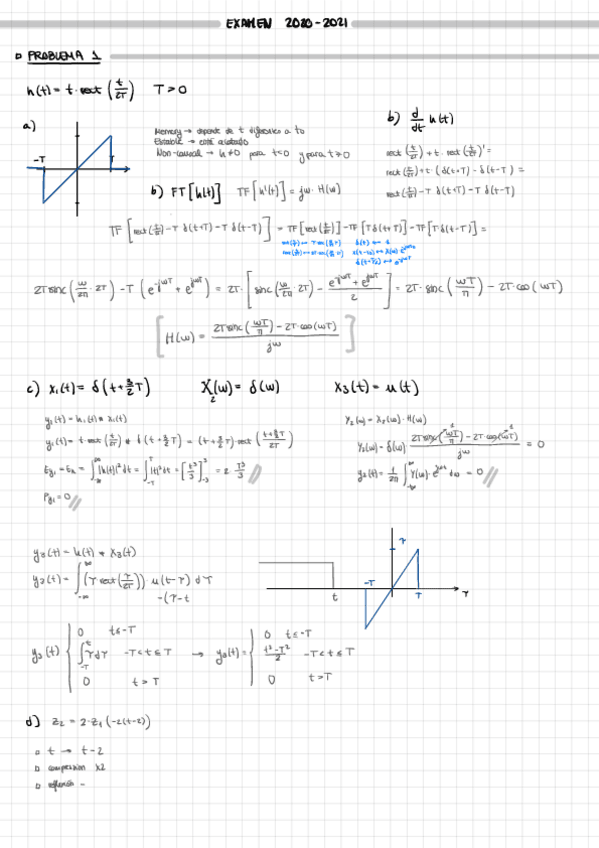 EXAMEN 2020-2021
PROBLEMA 1
h(t) = t · rect (t/2T) T > 0
a)
-T T
Memory → depende de t diferente a to
Estable → está acotado
Non-causal → h≠0 para t<0 y para t>0
b) d/dt h(t)
rect (t/2T) + t · rect (t/2T)' =
rect (t/2T) + t · (δ(t+T) - δ(t-T)) =
rect (t/2T) - T δ(t+T) - T δ(t-T)
b) FT[h(t)] TF[h'(t)] = jω · H(ω)
TF [rect(t/2T) - T δ(t+T) - T δ(t-T)] = TF[rect(t/2T)] - TF[T δ(t+T)] - TF[T δ(t-T)] =
2T sinc (ω/2π · 2T) - T (e^-jωT + e^jωT) = 2T · [sinc (ω/2π · 2T) - (e^-jωT + e^jωT)/2] = 2T · sinc (ωT/π) - 2T · cos (ωT)
[H(ω) = (2T sinc (ωT/π) - 2T · cos(ωT))/jω]
c) x1(t) = δ(t + 3/2 T) X2(ω) = δ(ω) x3(t) = u(t)
y1(t) = h1(t) * x1(t)
y1(t) = t · rect (t/2T) * δ(t + 3/2 T) = (t + 3/2 T) rect ((t + 3/2 T)/2T)
Ey1 = Eh = ∫_-∞^∞ |h(t)|² dt = ∫_-T^T |t|² dt = [t³/3] = 2 T³/3
Py1 = 0
Y2(ω) = X2(ω) · H(ω)
Y2(ω) = δ(ω) (2T sinc (ωT/π) - 2T cos(ωT))/jω = 0
y2(t) = 1/2π ∫_-∞^∞ Y(ω) · e^jωt dω = 0
y3(t) = h(t) * x3(t)
y3(t) = ∫_-∞^∞ (τ rect(τ/2T)) u(t-τ) dτ
-(τ-t
τ
-T
t T τ
y3(t) { 0 t≤-T
∫_-T^t τ dτ -T<t≤T → y3(t) = { 0 t≤-T
(t²-T²)/2 -T<t≤T
0 t>T
0 t>T
d) z2 = 2·z1(-2(t-2))
t → t-2
compresión x2
reflexión -